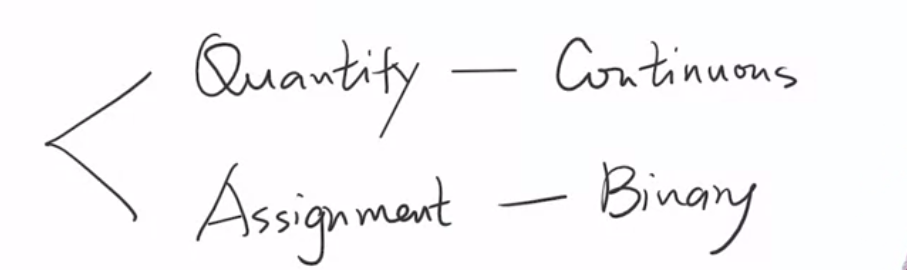 Quantify — Continuous
Assignment — Binary